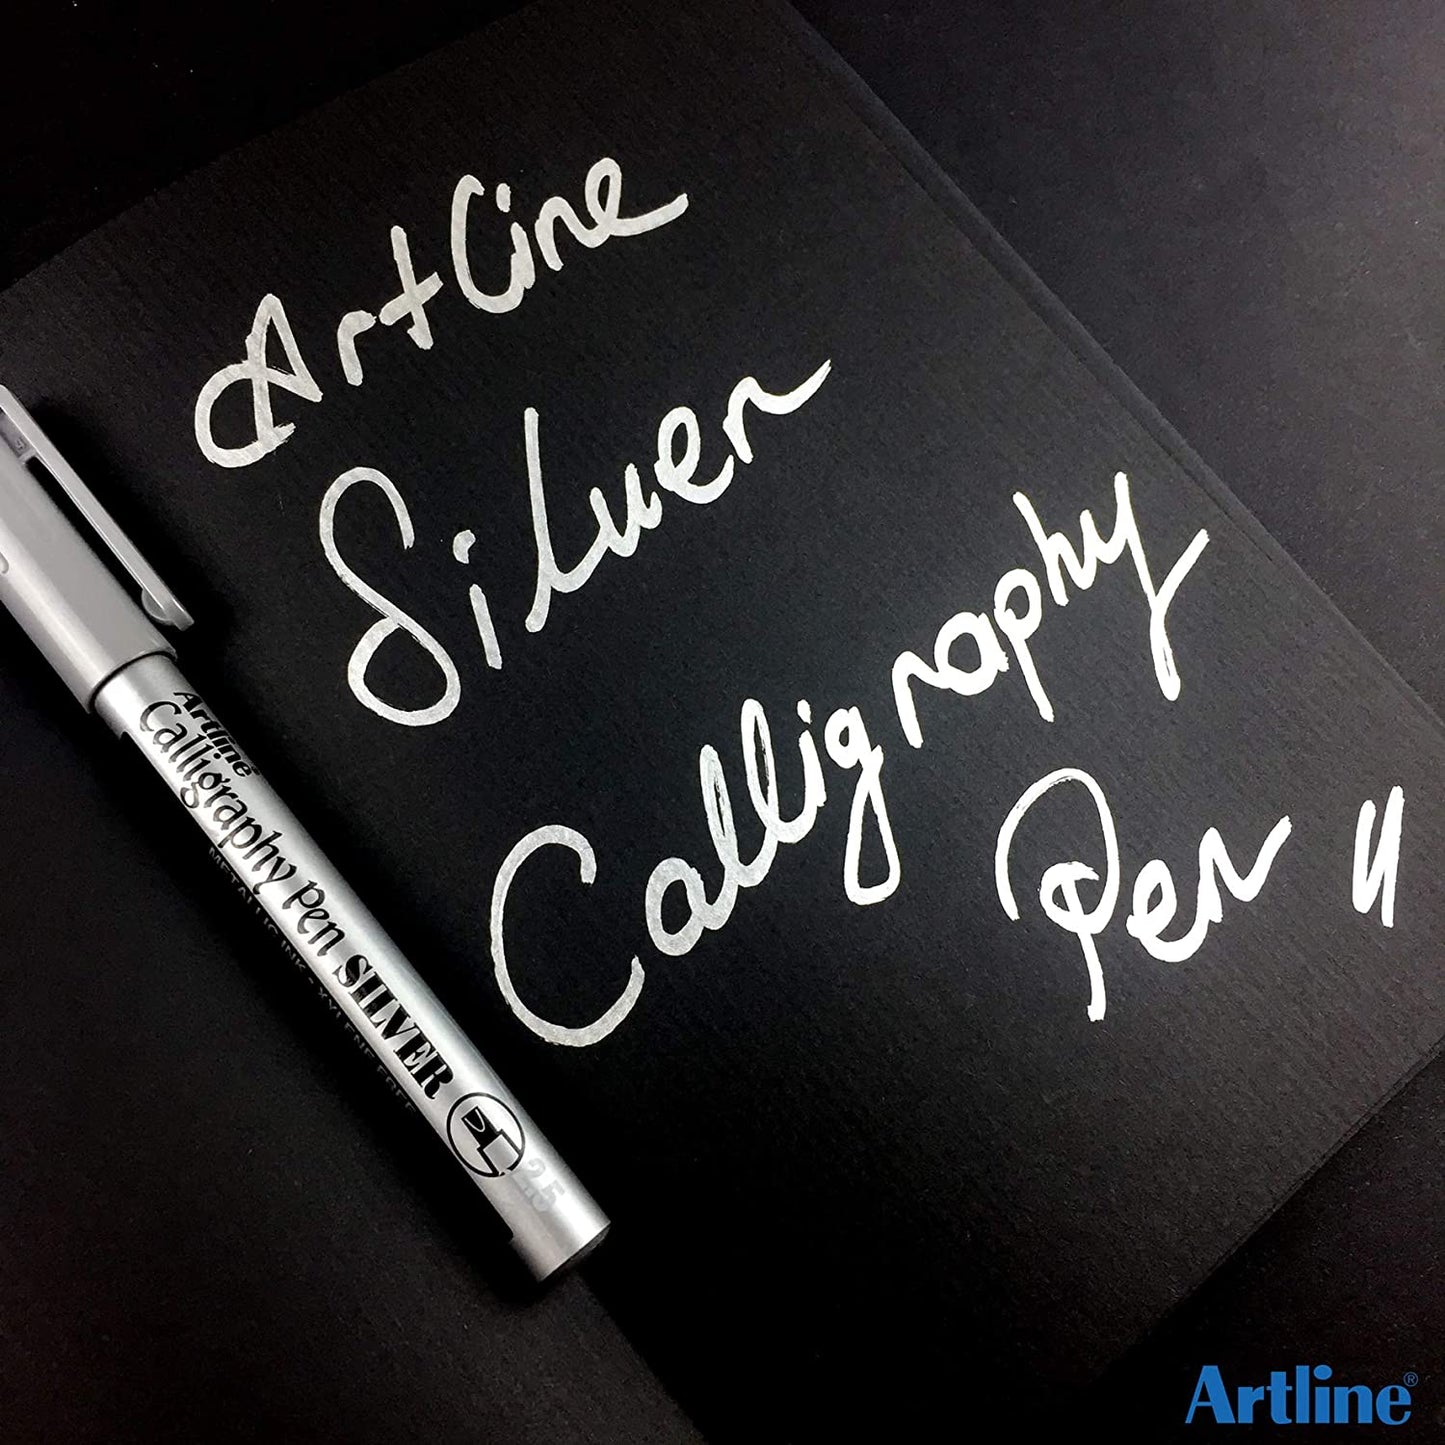 Artline
Silver
Calligraphy
Pen "
Artline
Calligraphy Pen SILVER
METALLIC INK - XYLENE FREE
2.5
Artline®